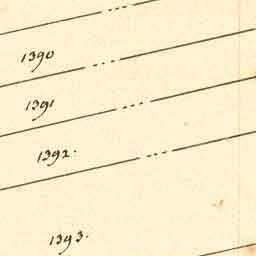 1390
1391
1392.
1393.